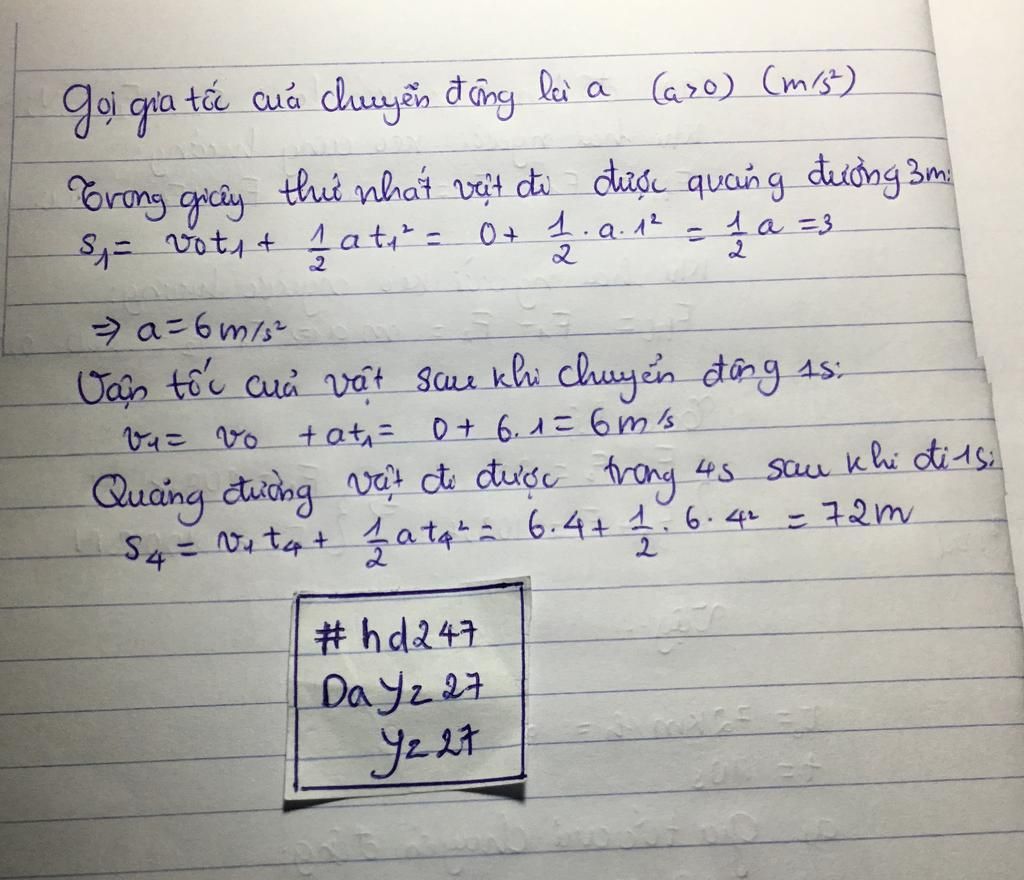 Gọi gia tốc cuả chuyển động là a (a>0) (m/s²)
Trong giây thứ nhất vật đi được quảng đường 3m:
S₁ = v₀t₁ + 1/2 at₁² = 0 + 1/2 . a . 1² = 1/2 a = 3
⇒ a = 6 m/s²
Vận tốc cuả vật sau khi chuyển động 1s:
v₁ = v₀ + at₁ = 0 + 6.1 = 6 m/s
Quảng đường vật đi được trong 4s sau khi đi 1s:
S₄ = v₁t₄ + 1/2 at₄² = 6.4 + 1/2 . 6 . 4² = 72m
# hd247
DaYz27
Yz27